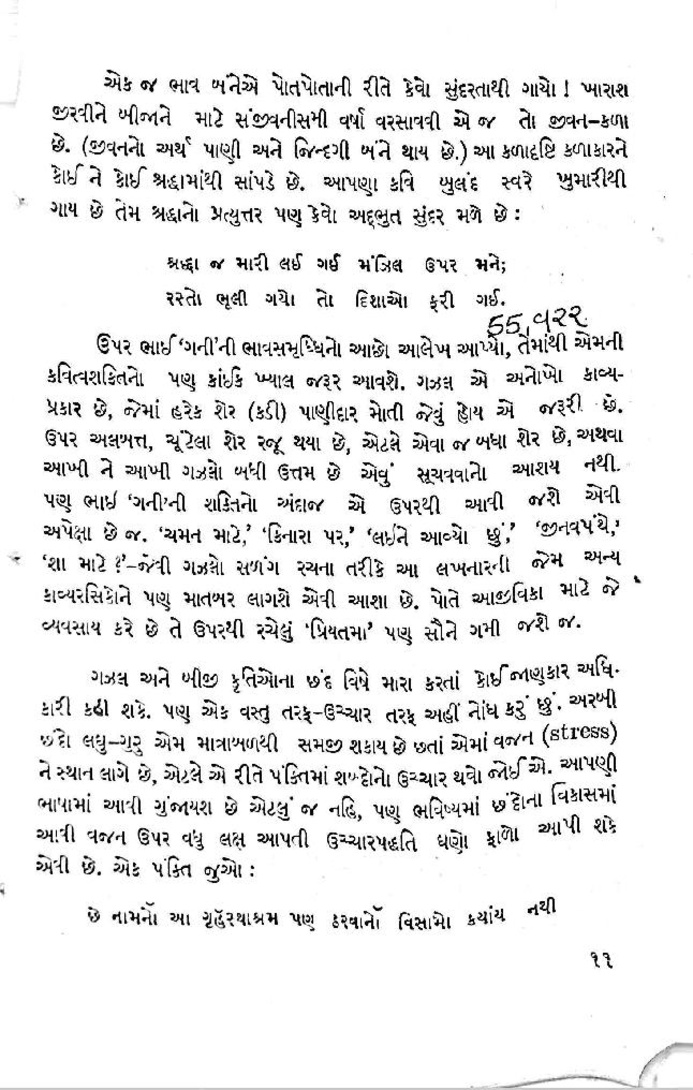 એક જ ભાવ બંનેએ પોતપોતાની રીતે કેવો સુંદરતાથી ગાયો ! ખારાશ
જીરવીને બીજાને માટે સંજીવનીસમી વર્ષા વરસાવવી એ જ તો જીવન–કળા
છે. (જીવનનો અર્થ પાણી અને જિન્દગી બંને થાય છે.) આ કળાદૃષ્ટિ કળાકારને
કોઈ ને કોઈ શ્રદ્ધામાંથી સાંપડે છે. આપણા કવિ બુલંદ સ્વરે ખુમારીથી
ગાય છે તેમ શ્રદ્ધાનો પ્રત્યુત્તર પણ કેવો અદ્ભુત સુંદર મળે છે :
શ્રદ્ધા જ મારી લઈ ગઈ મંઝિલ ઉપર મને;
રસ્તો ભૂલી ગયો તો દિશાઓ ફરી ગઈ.
55,૧૨૨
ઉપર ભાઈ ‘ગની’ની ભાવસમૃધ્ધિનો આછો આલેખ આપ્યો, તેમાંથી એમની
કવિત્વશક્તિનો પણ કાંઈક ખ્યાલ જરૂર આવશે. ગઝલ એ અનોખો કાવ્ય-
પ્રકાર છે, જેમાં હરેક શેર (કડી) પાણીદાર મોતી જેવું હોય એ જરૂરી છે.
ઉપર અલબત્ત, ચૂંટેલા શેર રજૂ થયા છે, એટલે એવા જ બધા શેર છે, અથવા
આખી ને આખી ગઝલો બધી ઉત્તમ છે એવું સૂચવવાનો આશય નથી.
પણ ભાઈ ‘ગની’ની શક્તિનો અંદાજ એ ઉપરથી આવી જશે એવી
અપેક્ષા છે જ. ‘ચમન માટે,’ ‘કિનારા પર,’ ‘લઈને આવ્યો છું,’ ‘જીનવપંથે,’
‘શા માટે ?’–જેવી ગઝલો સળંગ રચના તરીકે આ લખનારની જેમ અન્ય
કાવ્યરસિકોને પણ માતબર લાગશે એવી આશા છે. પોતે આજીવિકા માટે જે
વ્યવસાય કરે છે તે ઉપરથી રચેલું ‘પ્રિયતમા’ પણ સૌને ગમી જશે જ.
ગઝલ અને બીજી કૃતિઓના છંદ વિષે મારા કરતાં કોઈ જાણકાર અધિ-
કારી કહી શકે. પણ એક વસ્તુ તરફ–ઉચ્ચાર તરફ અહીં નોંધ કરું છું. અરબી
છંદો લઘુ–ગુરુ એમ માત્રાબળથી સમજી શકાય છે છતાં એમાં વજન (stress)
ને સ્થાન લાગે છે, એટલે એ રીતે પંક્તિમાં શબ્દોનો ઉચ્ચાર થવો જોઈ એ. આપણી
ભાષામાં આવી ગુંજાયશ છે એટલું જ નહિ, પણ ભવિષ્યમાં છંદોના વિકાસમાં
આવી વજન ઉપર વધુ લક્ષ આપતી ઉચ્ચારપદ્ધતિ ઘણો ફાળો આપી શકે
એવી છે. એક પંક્તિ જુઓ :
છે નામનૉ આ ગૃહસ્થાશ્રમ પણ ઠરવાનૉ વિસામો કયાંય નથી
૧૧